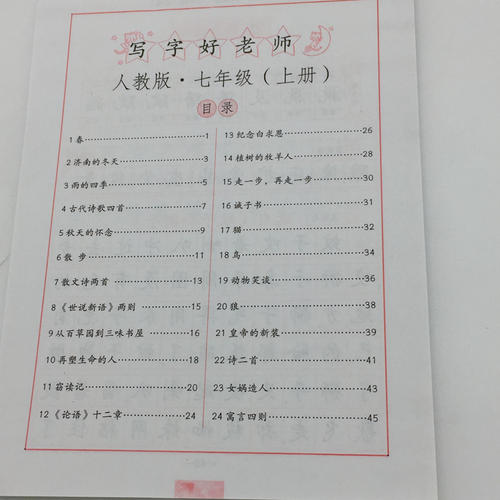 写字好老师
人教版·七年级（上册）
目录
1 春……1
2 济南的冬天……3
3 雨的四季……5
4 古代诗歌四首……7
5 秋天的怀念……9
6 散 步……11
7 散文诗两首……13
8《世说新语》两则……15
9 从百草园到三味书屋……16
10 再塑生命的人……18
11 窃读记……20
12《论语》十二章……24
13 纪念白求恩……26
14 植树的牧羊人……28
15 走一步，再走一步……30
16 诫子书……31
17 猫……32
18 鸟……34
19 动物笑谈……36
20 狼……38
21 皇帝的新装……39
22 诗二首……41
23 女娲造人……43
24 寓言四则……45